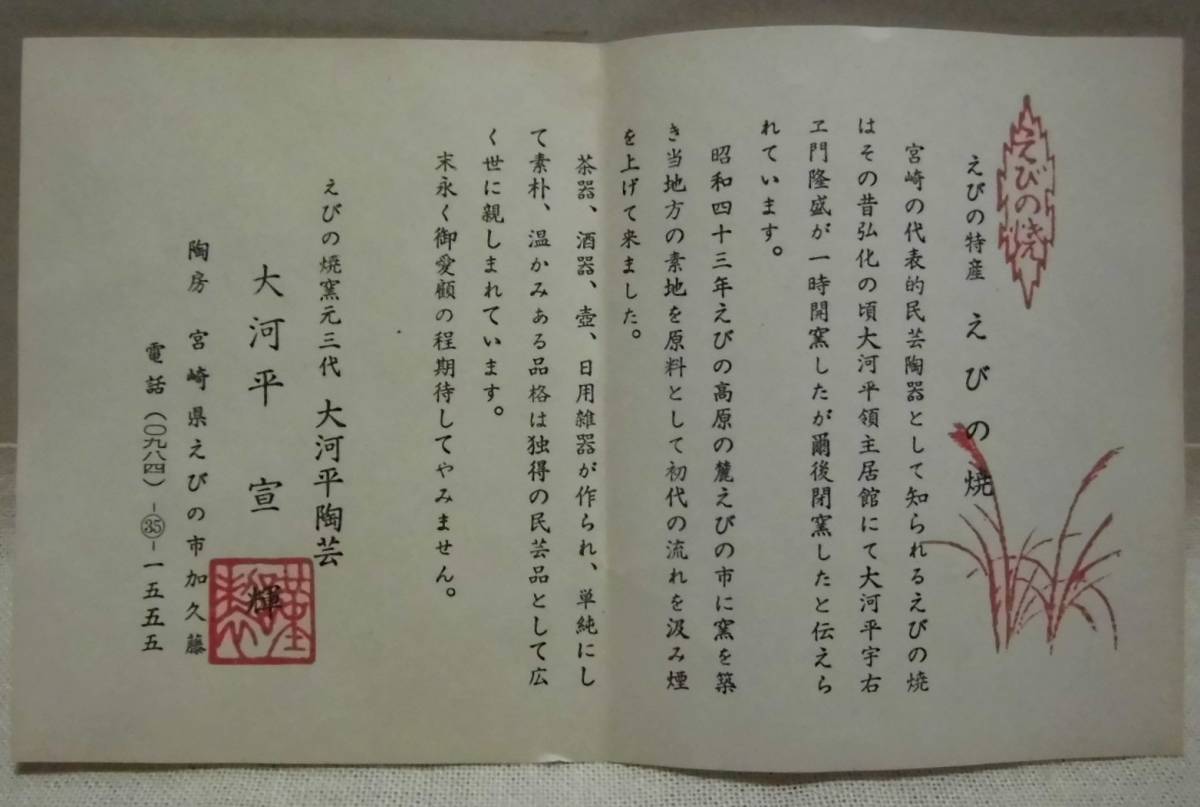 えびの焼
えびの特産 えびの焼
宮崎の代表的民芸陶器として知られるえびの焼
はその昔弘化の頃大河平領主居館にて大河平宇右
ヱ門隆盛が一時開窯したが爾後閉窯したと伝えら
れています。
昭和四十三年えびの高原の麓えびの市に窯を築
き当地方の素地を原料として初代の流れを汲み煙
を上げて来ました。
茶器、酒器、壺、日用雑器が作られ、単純にし
て素朴、温かみある品格は独得の民芸品として広
く世に親しまれています。
末永く御愛顧の程期待してやみません。
えびの焼窯元三代 大河平陶芸
大河平 宣輝
陶房 宮崎県えびの市加久藤
電話(〇九八四)-㉟-一五五五